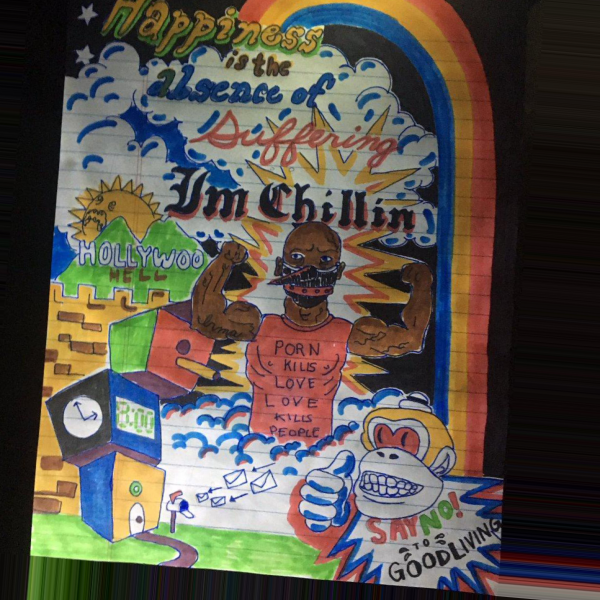 Happiness
is the
absence of
Suffering
Im Chillin
HOLLYWOO
HELL
PORN
KILLS
LOVE
LOVE
KILLS
PEOPLE
8:00
SAY NO!
TO
GOODLIVING